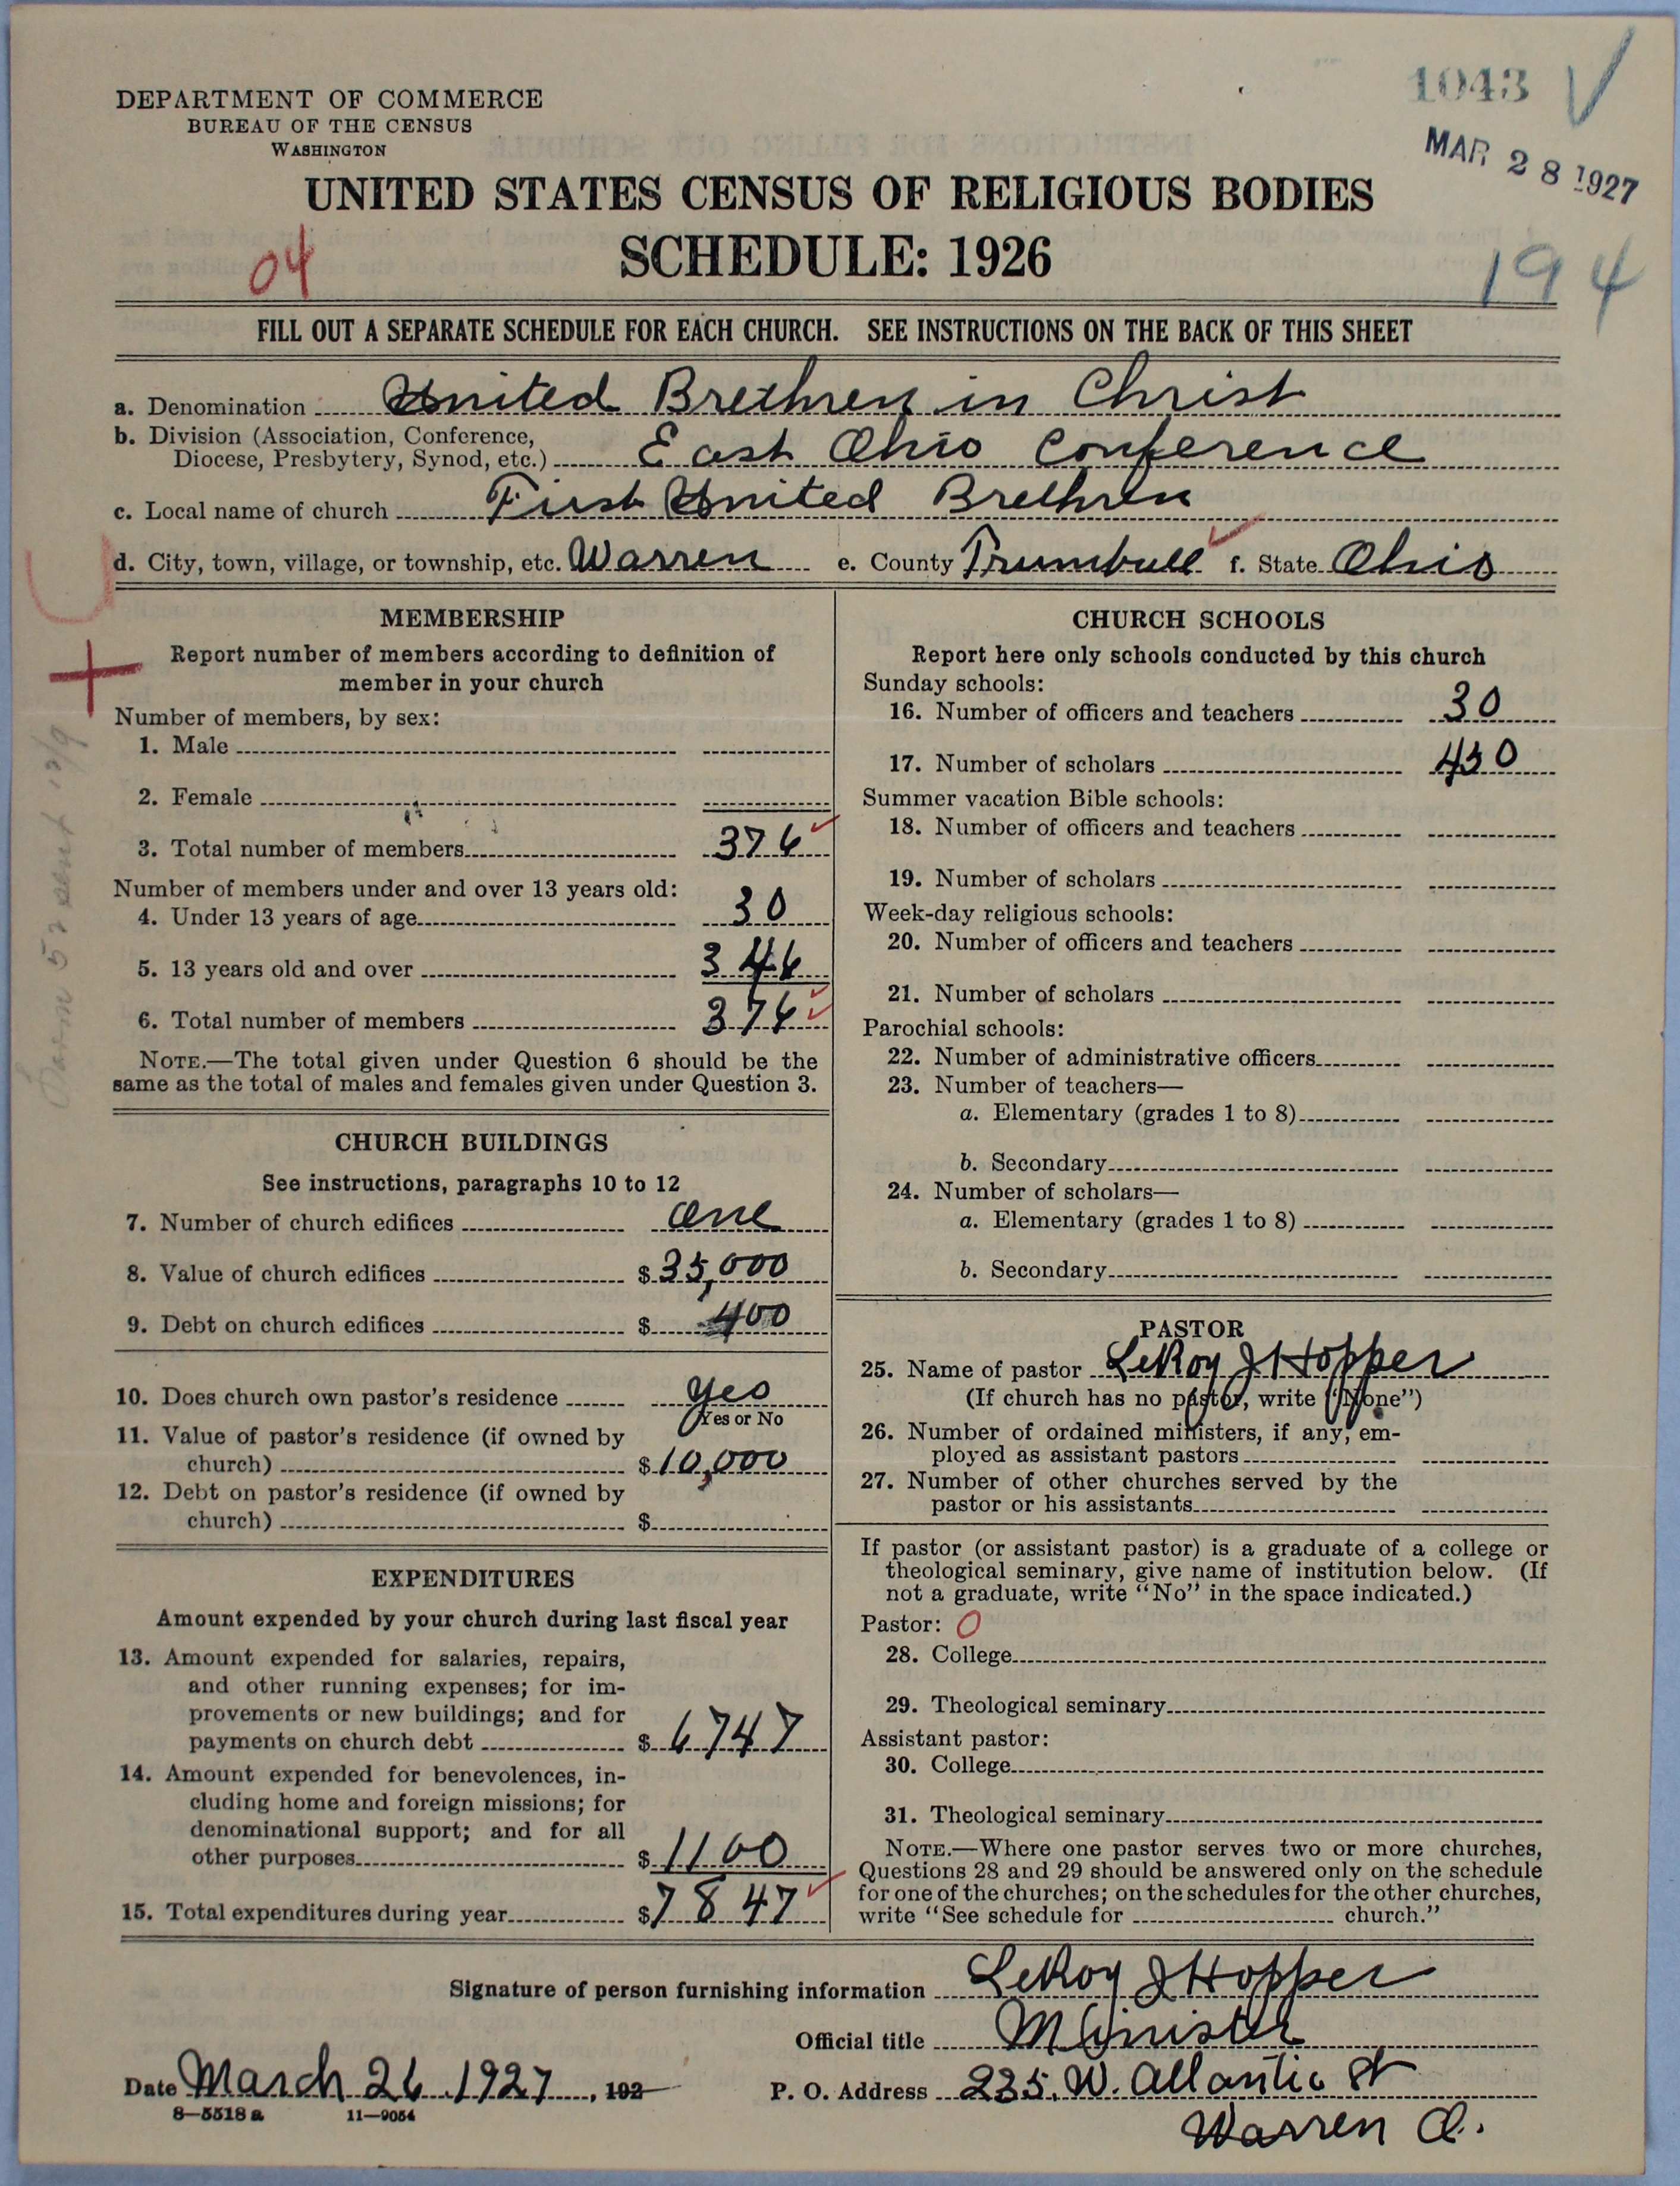 1043
MAR 28 1927
DEPARTMENT OF COMMERCE
BUREAU OF THE CENSUS
WASHINGTON
UNITED STATES CENSUS OF RELIGIOUS BODIES
SCHEDULE: 1926
04
194
FILL OUT A SEPARATE SCHEDULE FOR EACH CHURCH. SEE INSTRUCTIONS ON THE BACK OF THIS SHEET
a. Denomination United Brethren in Christ
b. Division (Association, Conference,
Diocese, Presbytery, Synod, etc.) East Ohio Conference
c. Local name of church First United Brethren
d. City, town, village, or township, etc. Warren e. County Trumbull f. State Ohio
MEMBERSHIP
Report number of members according to definition of
member in your church
Number of members, by sex:
1. Male
2. Female
3. Total number of members 376
Number of members under and over 13 years old:
4. Under 13 years of age 30
5. 13 years old and over 346
6. Total number of members 376
NOTE.—The total given under Question 6 should be the
same as the total of males and females given under Question 3.
CHURCH BUILDINGS
See instructions, paragraphs 10 to 12
7. Number of church edifices one
8. Value of church edifices $ 35,000
9. Debt on church edifices $ 400
10. Does church own pastor's residence yes
Yes or No
11. Value of pastor's residence (if owned by
church) $ 10,000
12. Debt on pastor's residence (if owned by
church) $
EXPENDITURES
Amount expended by your church during last fiscal year
13. Amount expended for salaries, repairs,
and other running expenses; for im-
provements or new buildings; and for
payments on church debt $ 6747
14. Amount expended for benevolences, in-
cluding home and foreign missions; for
denominational support; and for all
other purposes $ 1100
15. Total expenditures during year $ 7847
CHURCH SCHOOLS
Report here only schools conducted by this church
Sunday schools:
16. Number of officers and teachers 30
17. Number of scholars 450
Summer vacation Bible schools:
18. Number of officers and teachers
19. Number of scholars
Week-day religious schools:
20. Number of officers and teachers
21. Number of scholars
Parochial schools:
22. Number of administrative officers
23. Number of teachers—
a. Elementary (grades 1 to 8)
b. Secondary
24. Number of scholars—
a. Elementary (grades 1 to 8)
b. Secondary
PASTOR
25. Name of pastor LeRoy J Hopper
(If church has no pastor, write "None")
26. Number of ordained ministers, if any, em-
ployed as assistant pastors
27. Number of other churches served by the
pastor or his assistants
If pastor (or assistant pastor) is a graduate of a college or
theological seminary, give name of institution below. (If
not a graduate, write "No" in the space indicated.)
Pastor: O
28. College
29. Theological seminary
Assistant pastor:
30. College
31. Theological seminary
NOTE.—Where one pastor serves two or more churches,
Questions 28 and 29 should be answered only on the schedule
for one of the churches; on the schedules for the other churches,
write "See schedule for church."
Signature of person furnishing information LeRoy J Hopper
Official title Minister
Date March 26 1927, 192 P. O. Address 235 W. Atlantic St
Warren O.
8—5518 a 11—9054